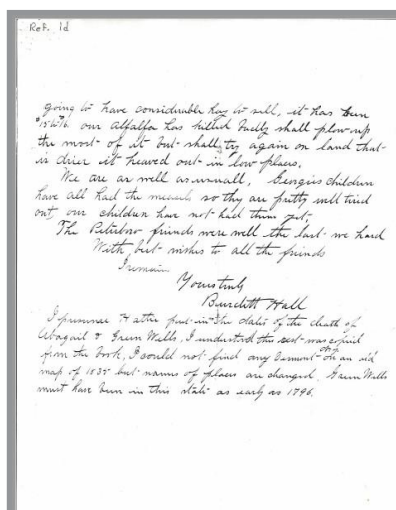 Ref. 1d
going to have considerable hay to sell, it has been
$15 to 16. our Alfalfa has killed badly shall plow up
the most of it but shall try again on land that
is drier it heaved out in low places.
We are as well as usuall, Georges children
have all had the measels so thy are pritty well tired
out, our children have not had them yet.
The Peterboro friends were well the last we heard
With best wishes to all the friends
I remain
Yours truly
Burdett Hall
I presume Hattie put in the date of the death of
Abagail & Green Wells, I understood the rest was copied
from the book, I could not find any Vermont on an old
map of 1835 but names of places are changed. Green Wells
must have been in this state as early as 1796.